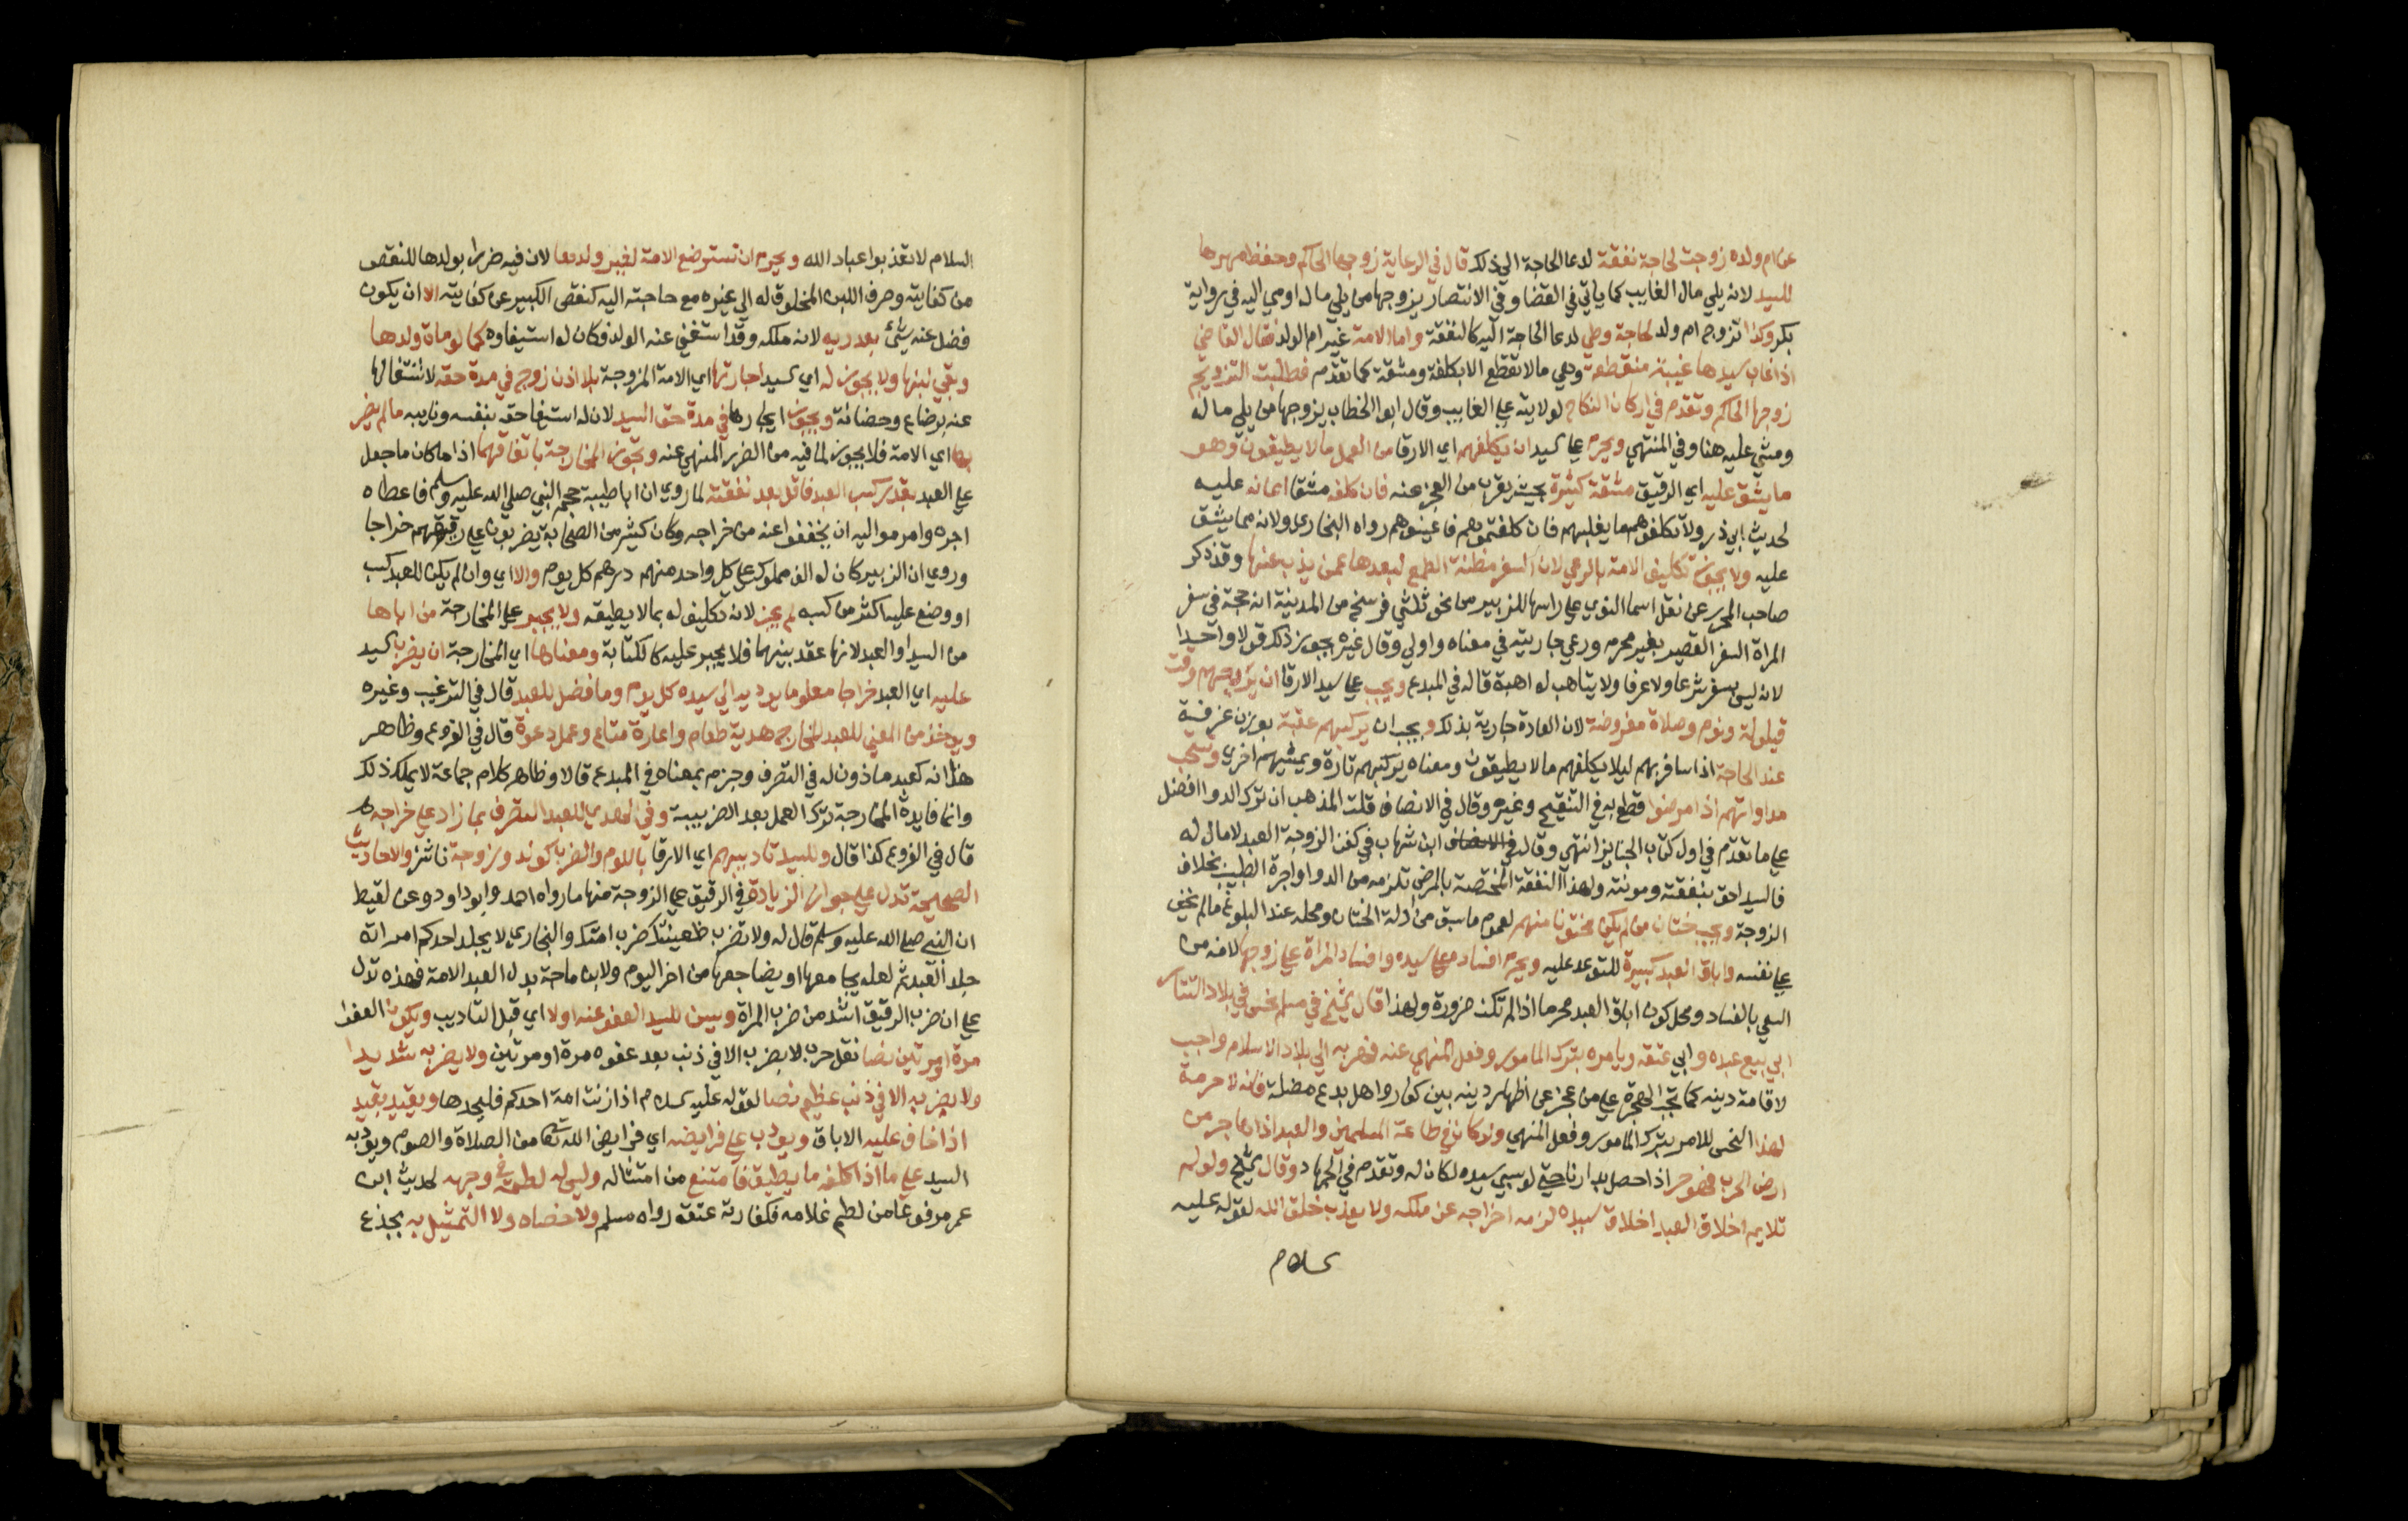 عن ام ولده زوجت لحاجة نفقة لدعا الحاجة الى ذلك قال في الرعاية زوجها الحاكم وحفظ مهرها
للسيد لانه يلي مال الغايب كما ياتي في القضا وفي الانتصار يزوجها من يلي ماله اومي اليه في رواية
بكر وكذا تزوج ام ولد لحاجة وطي لدعا الحاجة اليه كالنفقة واما الامة غير ام الولد فقال القاضي
اذا غاب سيدها غيبة منقطعة وهي مالا تقطع الا بكلفة ومشقة كما تقدم فطلبت التزويج
زوجها الحاكم وتقدم في اركان النكاح لولايته على الغايب وقال ابوا الخطاب يزوجها من يلي ماله
ومشي عليه هنا وفي المنتهي ويحرم على سيد ان يكلفهم اي الارقا من العمل مالا يطيقون وهو
ما يشق عليه اي الرقيق مشقة كثيرة بحيث يقرب من العجز عنه فان كلفه مشقا اعانه عليه
لحديث ابي ذر ولا تكلفوهم ما يغلبهم فان كلفتموهم فاعينوهم رواه البخاري ولانه مما يشق
عليه ولا يجوز تكليف الامة بالرعي لان السفر مظنة الطمع لبعدها عمن يذب عنها وقد ذكر
صاحب المحرر عن نقل اسما النوي على راسها للزبير من نحو ثلثي فرسخ من المدينة انه حجة في سفر
المراة السفر القصير بغير محرم ورعي جاريته في معناه واولي وقال غيره يجوز ذلك قولا واحدا
لانه ليس بسفر شرعا ولا عرفا ولا يتاهب له اهبة قاله في المبدع ويجب على سيد الارقا ان يريحهم وقت
قيلولة ونوم وصلاة مفروضة لان العادة جارية بذلك ويجب ان يركبهم عقبة بوزن غرفة
عند الحاجة اذا سافر بهم ليلا يكلفهم مالا يطيقون ومعناه يركبهم تارة ويمشيهم اخري وتستحب
مداواتهم اذا مرضوا قطع به في التنقيح وغيره وقال في الانصاف قلت المذهب ان ترك الدوا افضل
على ما تقدم في اول كتاب الجنايز انتهي وقال في الانصاف ابن شهاب في كفن الزوجة العبد لا مال له
فالسيد احق بنفقته ومونته ولهذا النفقة المختصة بالمرض تلزمه من الدوا واجرة الطبيب بخلاف
الزوجة ويجب ختان من لم يكن مختونا منهم لعموم ما سبق من ادلة الختان ومحله عند البلوغ مالم يخف
على نفسه واباق العبد كبيرة للتوعد عليه ويحرم افساده على سيده وافساد المراة على زوجها لانه من
السعي بالفساد ومحل كون اباق العبد محرما اذا لم تكن ضرورة ولهذا قال شيخ في مسلم بخس في بلاد التتار
ابي بيع عبده وابي عتقه ويامره بترك المامور وفعل المنهي عنه فهربه الي بلاد الاسلام واجب
لاقامة دينه كما تجب الهجرة على من عجز عن اظهار دينه بين كفار واهل بدع مضلة فانه لا حرمة
لهذا النحس للامر بترك المامور وفعل المنهي ولو كان في طاعة المسلمين والعبد اذا هاجر من
ارض الحرب فهو حر اذا حصل بدارنا حتي لو سبي سيده لكان له وتقدم في الجهاد وقال شيخ ولو لم
تلايم اخلاق العبد اخلاق سيده لزمه اخراجه عن ملكه ولا يعذب خلق الله لقوله عليه
السلام
السلام لا تعذبوا عباد الله ويحرم ان تسترضع الامة لغير ولدها لان فيه ضرا بولدها للنقص
من كفايته وصرف اللبن المخلوق له الي غيره مع حاجته اليه كنقص الكبير عن كفايته الا ان يكون
فضل عنه شيئ بعد ريه لانه ملكه وقد استغني عنه الولد فكان له استيفاوه كما لو مات ولدها
وبقي لبنها ولا يجوز له اي لسيد اجارتها اي الامة المزوجة بلا اذن زوج في مدة حقه لاشتغالها
عنه برضاع وحضانة ويجوز ايجارها في مدة حق السيد لان له استيفا حقه بنفسه ونايبه مالم يضر
بها اي الامة فلا يجوز لما فيه من الضرر المنهي عنه وتجوز المخارجة باتفاقهما اذا ما كان ما جعل
على العبد بقدر كسب العبد فاقل بعد نفقته لما روي ان ابا طيبة حجم النبي صلى الله عليه وسلم فاعطاه
اجره وامر مواليه ان يخففوا عنه من خراجه وكان كثير من الصحابة يضربون على رقيقهم خراجا
وروي ان الزبير كان له الف مملوك على كل واحد منهم درهم كل يوم والا اي وان لم يكن للعبد كسب
او وضع عليه اكثر من كسبه لم يجز لانه تكليف له بما لا يطيقه ولا يجبر على المخارجة من اباها
من السيد او العبد لانها عقد بينهما فلا يجبر عليه كالكتابة ومعناها اي المخارجة ان يضرب سيد
عليه اي العبد خراجا معلوما يوديه الي سيده كل يوم وما فضل للعبد قال في الترغيب وغيره
ويوخذ من المغني للعبد المخارج هدية طعام واعارة متاع وعمل دعوة قال في الفروع وظاهر
هذا انه كعبد ماذون له في التصرف وجزم بمعناه في المبدع قالا وظاهر كلام جماعة لا يملك ذلك
وانما فايدة المخارجة ترك العمل بعد الضريبة وفي الهدي للعبد التصرف بما زاد على خراجه
قال في الفروع كذا قال وللسيد تاديبهم اي الارقا باللوم والضرب كولد وزوجة ناشز والاحاديث
الصحيحة تدل على جواز الزيادة في الرقيق على الزوجة منها ما رواه احمد وابو داود وعن لقيط
ان النبي صلى الله عليه وسلم قال له ولا تضرب ظعينتك ضرب امتك والبخاري لا يجلد احدكم امراته
جلد العبد ثم لعله يجامعها او يضاجعها من اخر اليوم ولابن ماجة بدل العبد الامة فهذه تدل
على ان ضرب الرقيق اشد من ضرب المراة ويسن للسيد العفو عنه اولا اي قبل التاديب ويكون العفو
مرة او مرتين نصا نقل حرب لا يضرب الا في ذنب بعد عفوه مرة او مرتين ولا يضربه شديدا
ولا يضربه الا في ذنب عظيم نصا لقوله عليه السلام اذا زنت امة احدكم فليجلدها ويقيد بقيد
اذا خاف عليه الاباق ويودب على فرايضه اي فرايض الله تعالي من الصلاة والصوم ويودبه
السيد على ما اذا كلفه ما يطيق فامتنع من امتثاله وليس له لطمه في وجهه لحديث ابن
عمر مرفوعا من لطم غلامه فكفارته عتقه رواه مسلم ولا خصاه ولا التمثيل به بجذع